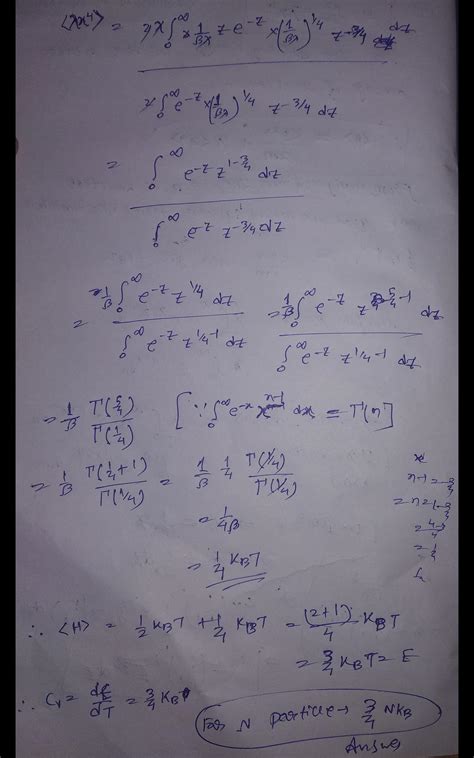 ⟨λx⁴⟩ = λ∫₀^∞ × 1/βλ z e^-z × (1/βλ)^1/4 z^-3/4 dz
λ∫₀^∞ e^-z × (1/βλ)^1/4 z^-3/4 dz
= ∫₀^∞ e^-z z^1-3/4 dz
∫₀^∞ e^-z z^-3/4 dz
= 1/β ∫₀^∞ e^-z z^1/4 dz / ∫₀^∞ e^-z z^1/4-1 dz = 1/β ∫₀^∞ e^-z z^5/4-1 dz / ∫₀^∞ e^-z z^1/4-1 dz
= 1/β Γ(5/4)/Γ(1/4) [∵ ∫₀^∞ e^-x x^n-1 dx = Γ(n)]
= 1/β Γ(1/4+1)/Γ(1/4) = 1/β 1/4 Γ(1/4)/Γ(1/4)
= 1/4β
= 1/4 K_BT
n-1 = -3/4
= n = 1-3/4
= 4-3/4
= 1/4
∴ ⟨H⟩ = 1/2 K_BT + 1/4 K_BT = (2+1)/4 K_BT
= 3/4 K_BT = E
∴ C_v = dE/dT = 3/4 K_B
For N particle → 3/4 NK_B
Answer